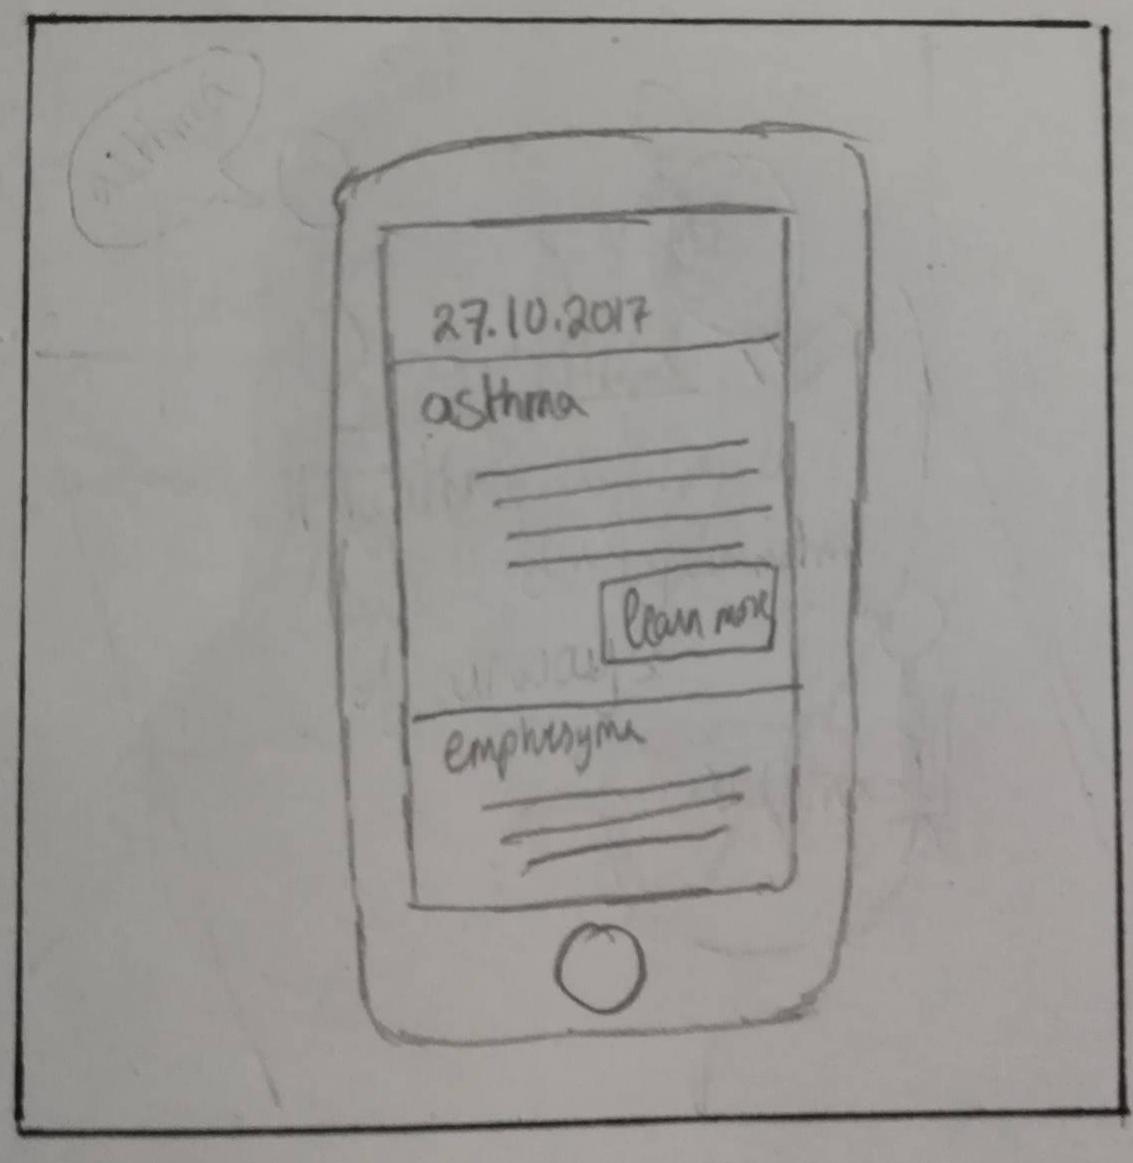 asthma
27.10.2017
asthma
learn more
emphesyma